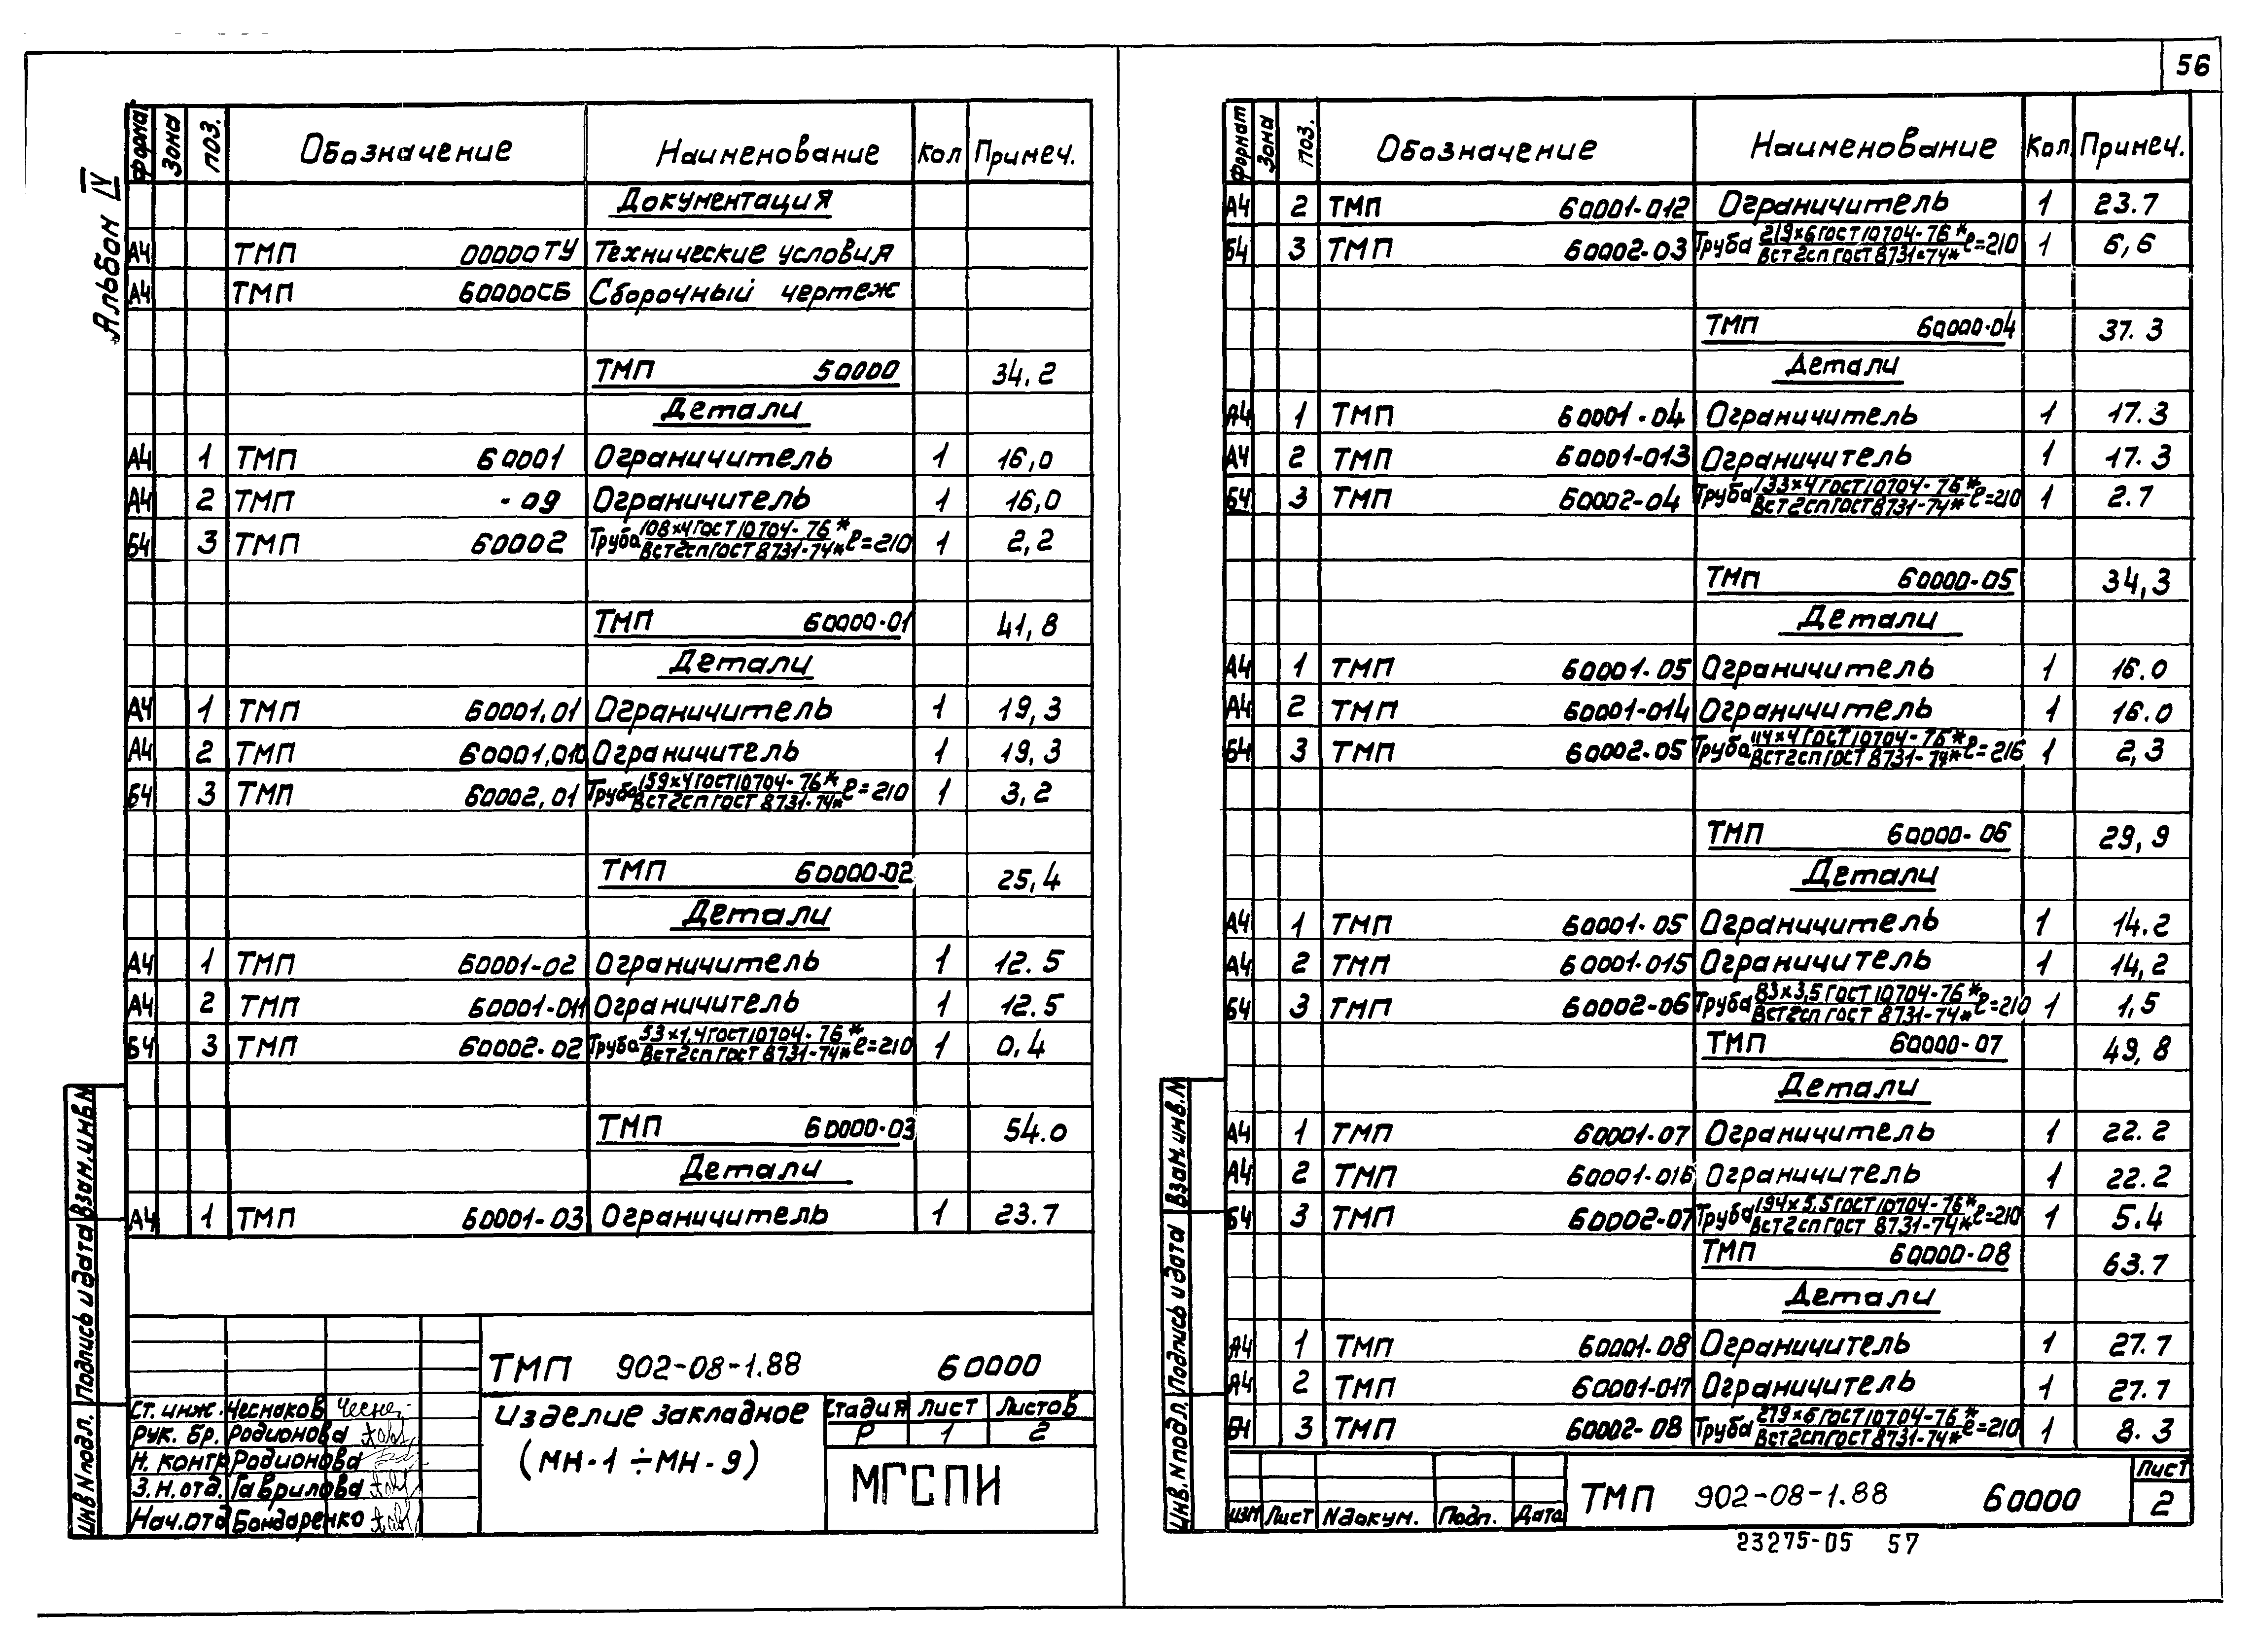 56
Альбом IV
Формат Зона Поз. Обозначение Наименование Кол Примеч.
Документация
А4 ТМП 00000ТУ Технические условия
А4 ТМП 60000СБ Сборочный чертеж
ТМП 50000 34,2
Детали
А4 1 ТМП 60001 Ограничитель 1 16,0
А4 2 ТМП -09 Ограничитель 1 16,0
Б4 3 ТМП 60002 Труба 108×4 ГОСТ 10704-76* / ВСТ2сп ГОСТ 8731-74* ℓ=210 1 2,2
ТМП 60000-01 41,8
Детали
А4 1 ТМП 60001.01 Ограничитель 1 19,3
А4 2 ТМП 60001.010 Ограничитель 1 19,3
Б4 3 ТМП 60002.01 Труба 159×4 ГОСТ 10704-76* / ВСТ2сп ГОСТ 8731-74* ℓ=210 1 3,2
ТМП 60000-02 25,4
Детали
А4 1 ТМП 60001-02 Ограничитель 1 12.5
А4 2 ТМП 60001-011 Ограничитель 1 12.5
Б4 3 ТМП 60002-02 Труба 53×1,4 ГОСТ 10704-76* / ВСТ2сп ГОСТ 8731-74* ℓ=210 1 0,4
ТМП 60000-03 54.0
Детали
А4 1 ТМП 60001-03 Ограничитель 1 23.7
Взам.инв.N
Подпись и дата
Инв N подл.
ТМП 902-08-1.88 60000
Ст. инж. Чеснаков
Рук. бр. Родионова
Н. контр Родионова
З.Н.отд. Гаврилова
Нач.отд Бондаренко
Изделие закладное
(МН-1÷МН-9)
Стадия Лист Листов
Р 1 2
МГСПИ
Формат Зона Поз. Обозначение Наименование Кол. Примеч.
А4 2 ТМП 60001-012 Ограничитель 1 23.7
Б4 3 ТМП 60002-03 Труба 219×6 ГОСТ 10704-76* / ВСТ2сп ГОСТ 8731-74* ℓ=210 1 6,6
ТМП 60000-04 37.3
Детали
А4 1 ТМП 60001-04 Ограничитель 1 17.3
А4 2 ТМП 60001-013 Ограничитель 1 17.3
Б4 3 ТМП 60002-04 Труба 133×4 ГОСТ 10704-76* / ВСТ2сп ГОСТ 8731-74* ℓ=210 1 2.7
ТМП 60000-05 34,3
Детали
А4 1 ТМП 60001-05 Ограничитель 1 16.0
А4 2 ТМП 60001-014 Ограничитель 1 16.0
Б4 3 ТМП 60002-05 Труба 114×4 ГОСТ 10704-76* / ВСТ2сп ГОСТ 8731-74* ℓ=216 1 2,3
ТМП 60000-06 29,9
Детали
А4 1 ТМП 60001-05 Ограничитель 1 14.2
А4 2 ТМП 60001-015 Ограничитель 1 14,2
Б4 3 ТМП 60002-06 Труба 83×3,5 ГОСТ 10704-76* / ВСТ2сп ГОСТ 8731-74* ℓ=210 1 1,5
ТМП 60000-07 49,8
Детали
А4 1 ТМП 60001-07 Ограничитель 1 22.2
А4 2 ТМП 60001-016 Ограничитель 1 22.2
Б4 3 ТМП 60002-07 Труба 194×5,5 ГОСТ 10704-76* / ВСТ2сп ГОСТ 8731-74* ℓ=210 1 5.4
ТМП 60000-08 63.7
Детали
А4 1 ТМП 60001-08 Ограничитель 1 27.7
А4 2 ТМП 60001-017 Ограничитель 1 27.7
Б4 3 ТМП 60002-08 Труба 279×6 ГОСТ 10704-76* / ВСТ2сп ГОСТ 8731-74* ℓ=210 1 8.3
Взам.инв.N
Подпись и дата
Инв.N подл.
Изм Лист N докум. Подп. Дата
ТМП 902-08-1.88 60000
Лист
2
23275-05 57